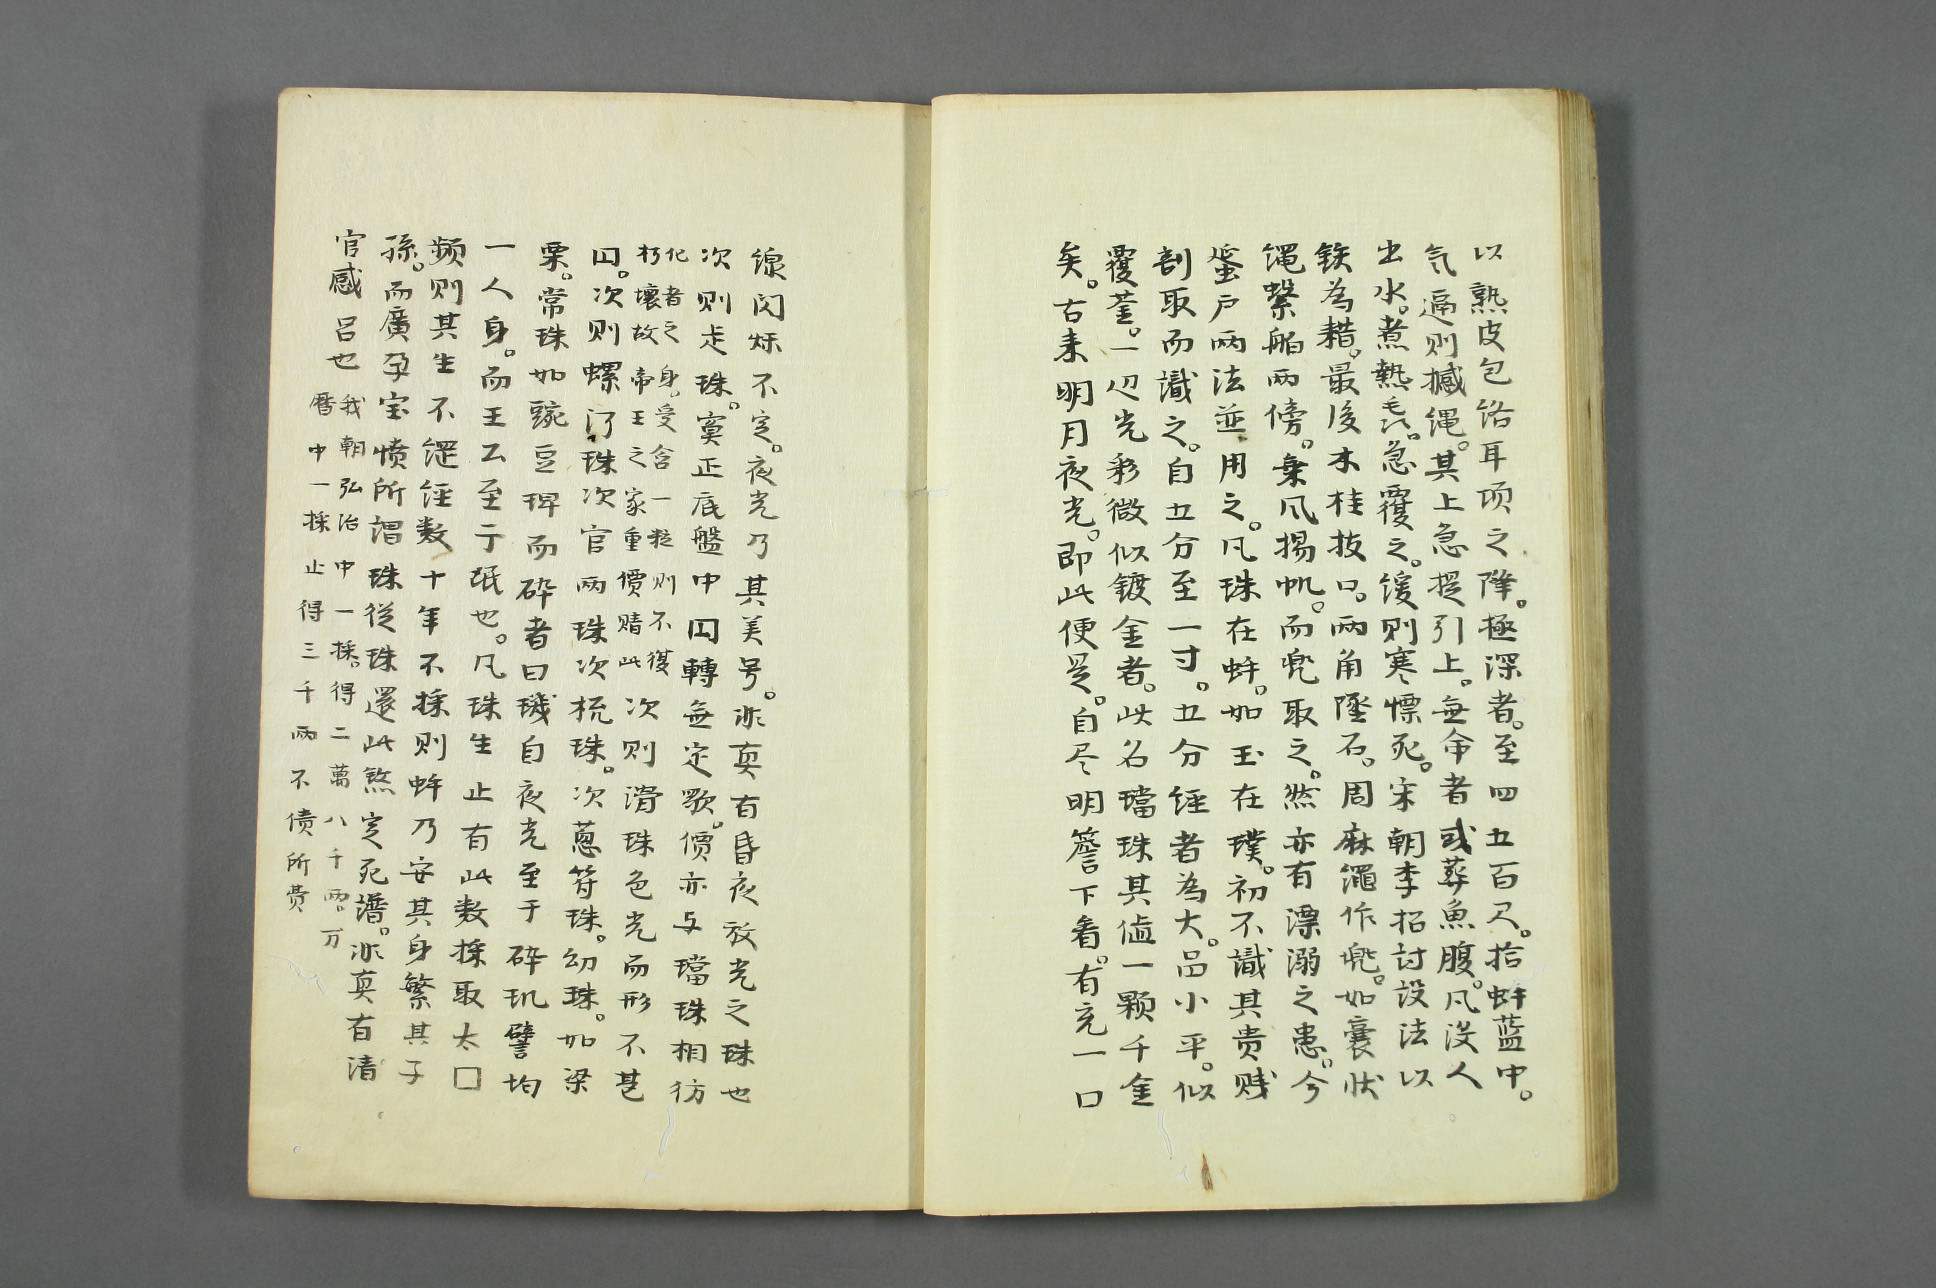 以熟皮包络耳项之際。極深者。至四五百尺。拾蚌蓝中。
气逼则撼绳。其上急提引上。無命者或葬魚腹。凡没人
出水。煮熱毳。急覆之。缓则寒慄死。宋朝李招討設法以
鉄為耩。最後木柱扳口。两角墜石。周麻䋲作兠。如囊状
绳繫舶两傍。乗凡揚帆。而兠取之。然亦有漂溺之患。今
蜑户两法並用之。凡珠在蚌。如玉在璞。初不識其贵贱
剖取而識之。自五分至一寸。五分経者為大。品小平。似
覆釜。一边光彩微似鍍金者。此名璫珠其値一颗千金
矣。古来明月夜光。即此便是。自尽明簷下看。有竞一口
線閃烁不定。夜光乃其美号。非真有昏夜放光之珠也
次则走珠。寘正底盤中囙轉無定歇。價亦与璫珠相彷
化者之身。受含一粒则不復
朽壊故帝王之家重價賭此
次则滑珠色光而形不甚
囙。次则螺䃅珠次官两珠次梳珠。次蔥符珠。幼珠。如梁
粟。常珠如豌豆琕而砕者曰璣自夜光至于砕玑譬均
一人身。而王公至于氓也。凡珠生止有此数採取太□
频则其生不継経数十年不採则蚌乃安其身繁其子
孫。而廣孕宝愤所谓珠従珠還此煞定死譜。非真有清
官感召也
我朝弘治中一採。得二萬八千两。万
暦中一採止得三千两不債所费